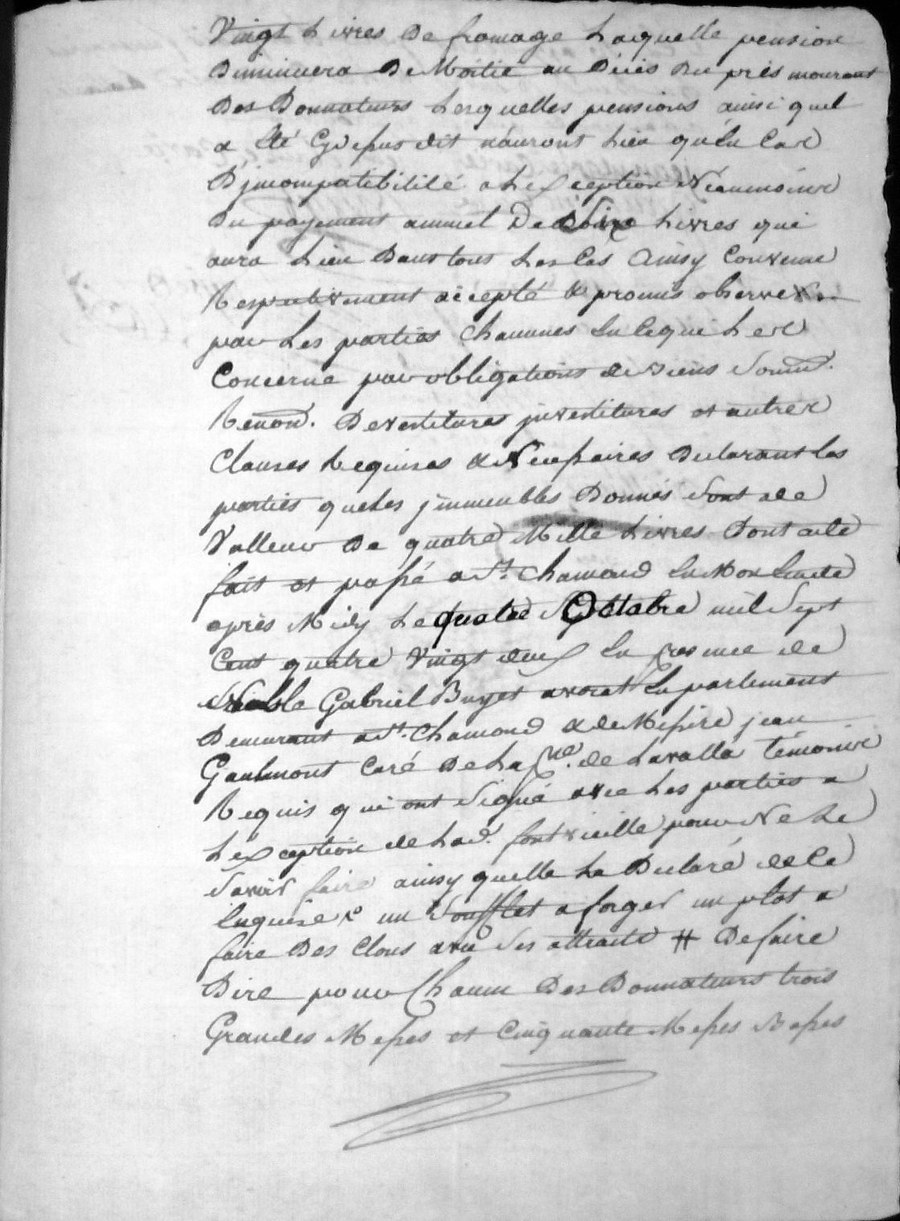 Vingt Livres De fromage Laquelle pension
Diminuera De Moitié au Décés Du prés mourant
Des Donnateurs Lesquelles pensions ainsi quel
a été Cydepus dit n'auront Lieu qu'En Cas
D'jncompatibilité a Lexception Néanmoins
Du payement annuel De Livres qui
aura Lieu Dans tous Les Cas Ainsy Convenu
Respectivement accepté & promis observer
par Les parties Chacunes En ce que Les
Concerne par obligations de biens soum.
Renon. Devestitures jnvestitures et autres
Clauses Requises & Necessaires Declarant Les
parties que Les jmmeubles Donnés sont de
Valleur De quatre Mille Livres Dont acte
fait et passé a St. Chamond En Mon Etude
après Midy Le quatre Octobre mil Sept
Cent quatre Vingt deux En presence de
Noble Gabriel Buyet avocat En parlement
Demeurant a St. Chamond & de Messire jean
Gaulmont Curé De La de Lavalla témoins
Requis qui ont Signé avec Les parties a
L'exception de Lad. fontvieille pour Ne Le
Savoir faire ainsy quelle La Declaré de ce
Enquise un Soufflet a forger un plot a
faire Des Clous avec Ses attraits # De faire
Dire pour Chacun Des Donnateurs trois
Grandes Messes et Cinquante Messes Basses